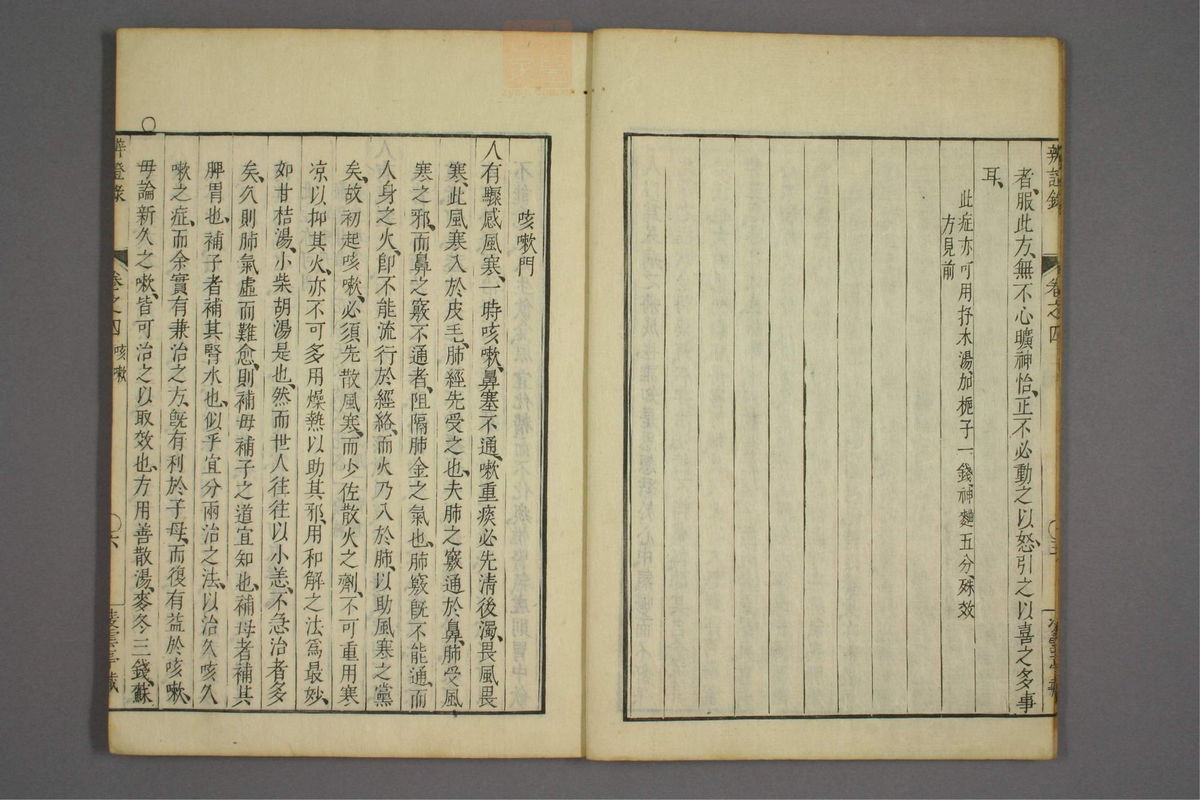 者、服此方、無不心曠神怡、正不必動之以怒、引之以喜之多事
耳、
此症亦可用抒木湯加梔子一錢神麯五分殊效
方見前
卷之四
咳嗽門
人有驟感風寒、一時咳嗽、鼻塞不通、嗽重痰必先清後濁、畏風畏
寒、此風寒入於皮毛、肺經先受之也、夫肺之竅通於鼻、肺受風
寒之邪、而鼻之竅不通者、阻隔肺金之氣也、肺竅旣不能通、而
人身之火、卽不能流行於經絡、而火乃入於肺、以助風寒之黨
矣、故初起咳嗽、必須先散風寒、而少佐散火之劑、不可重用寒
凉以抑其火、亦不可多用燥熱以助其邪、用和解之法爲最妙、
如甘桔湯、小柴胡湯是也、然而世人往往以小恙、不急治者多
矣、久則肺氣虛而難愈、則補母補子之道宜知也、補母者補其
脾胃也、補子者補其腎水也、似乎宜分兩治之法、以治久咳久
嗽之症、而余實有兼治之方、旣有利於子母、而復有益於咳嗽、
毋論新久之嗽、皆可治之以取效也、方用善散湯、麥冬三錢、蘇
辨證錄 卷之四 咳嗽 〇六